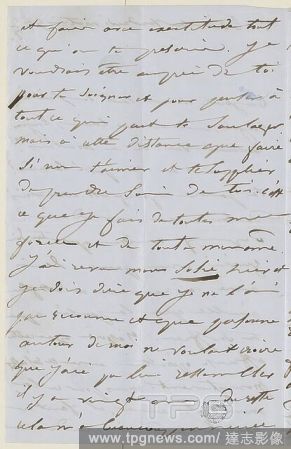 et faire avec exactitude tout
ce qu'on te prescrira. Je
voudrais être auprès de toi
pour te soigner et pour parler à
tout ce qui peut te soulager
mais à cette distance que faire
si non t'aimer et te supplier
de prendre soin de toi. C'est
ce que je fais de toutes mes
forces et de toute mon âme.
J'ai revu mons hier et
je dois dire que je ne l'ai
pas reconnu et que personne
autour de moi ne voulait croire
que j'aie pu lui ressembler
il y a vingt ans. Du reste
cela m'a beaucoup
TPG
www.tpgnews.com / 達志影像